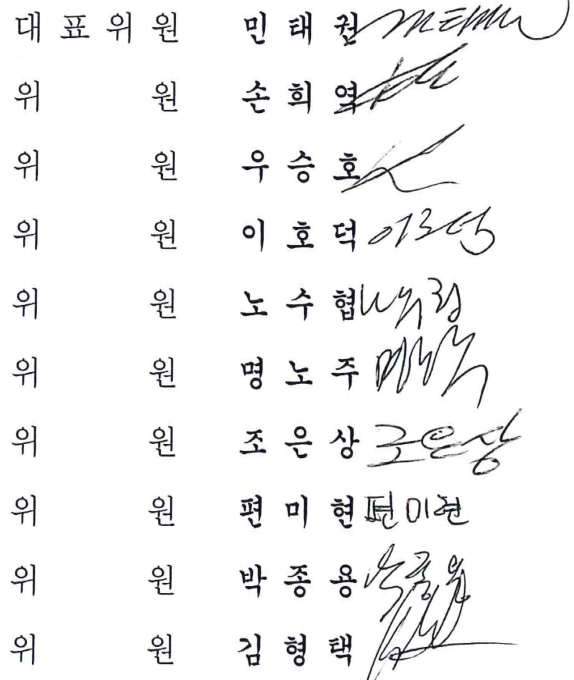 대표위원 민태권 민태권
위 원 손희역
위 원 우승호
위 원 이호덕 이호덕
위 원 노수협 노수협
위 원 명노주
위 원 조은상 조은상
위 원 편미현 편미현
위 원 박종용 박종용
위 원 김형택